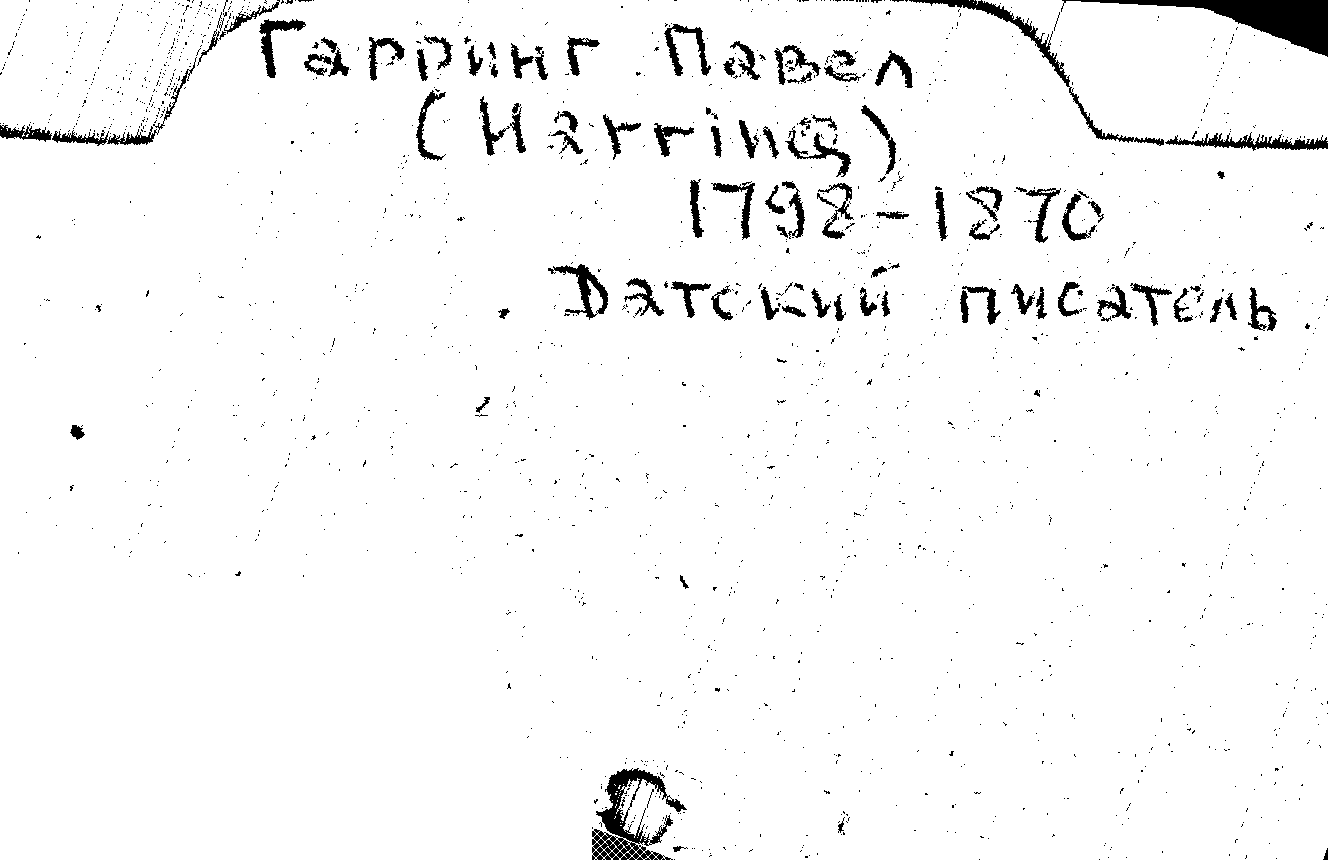 Гарринг Павел
(Harring)
1798-1870
Датский писатель